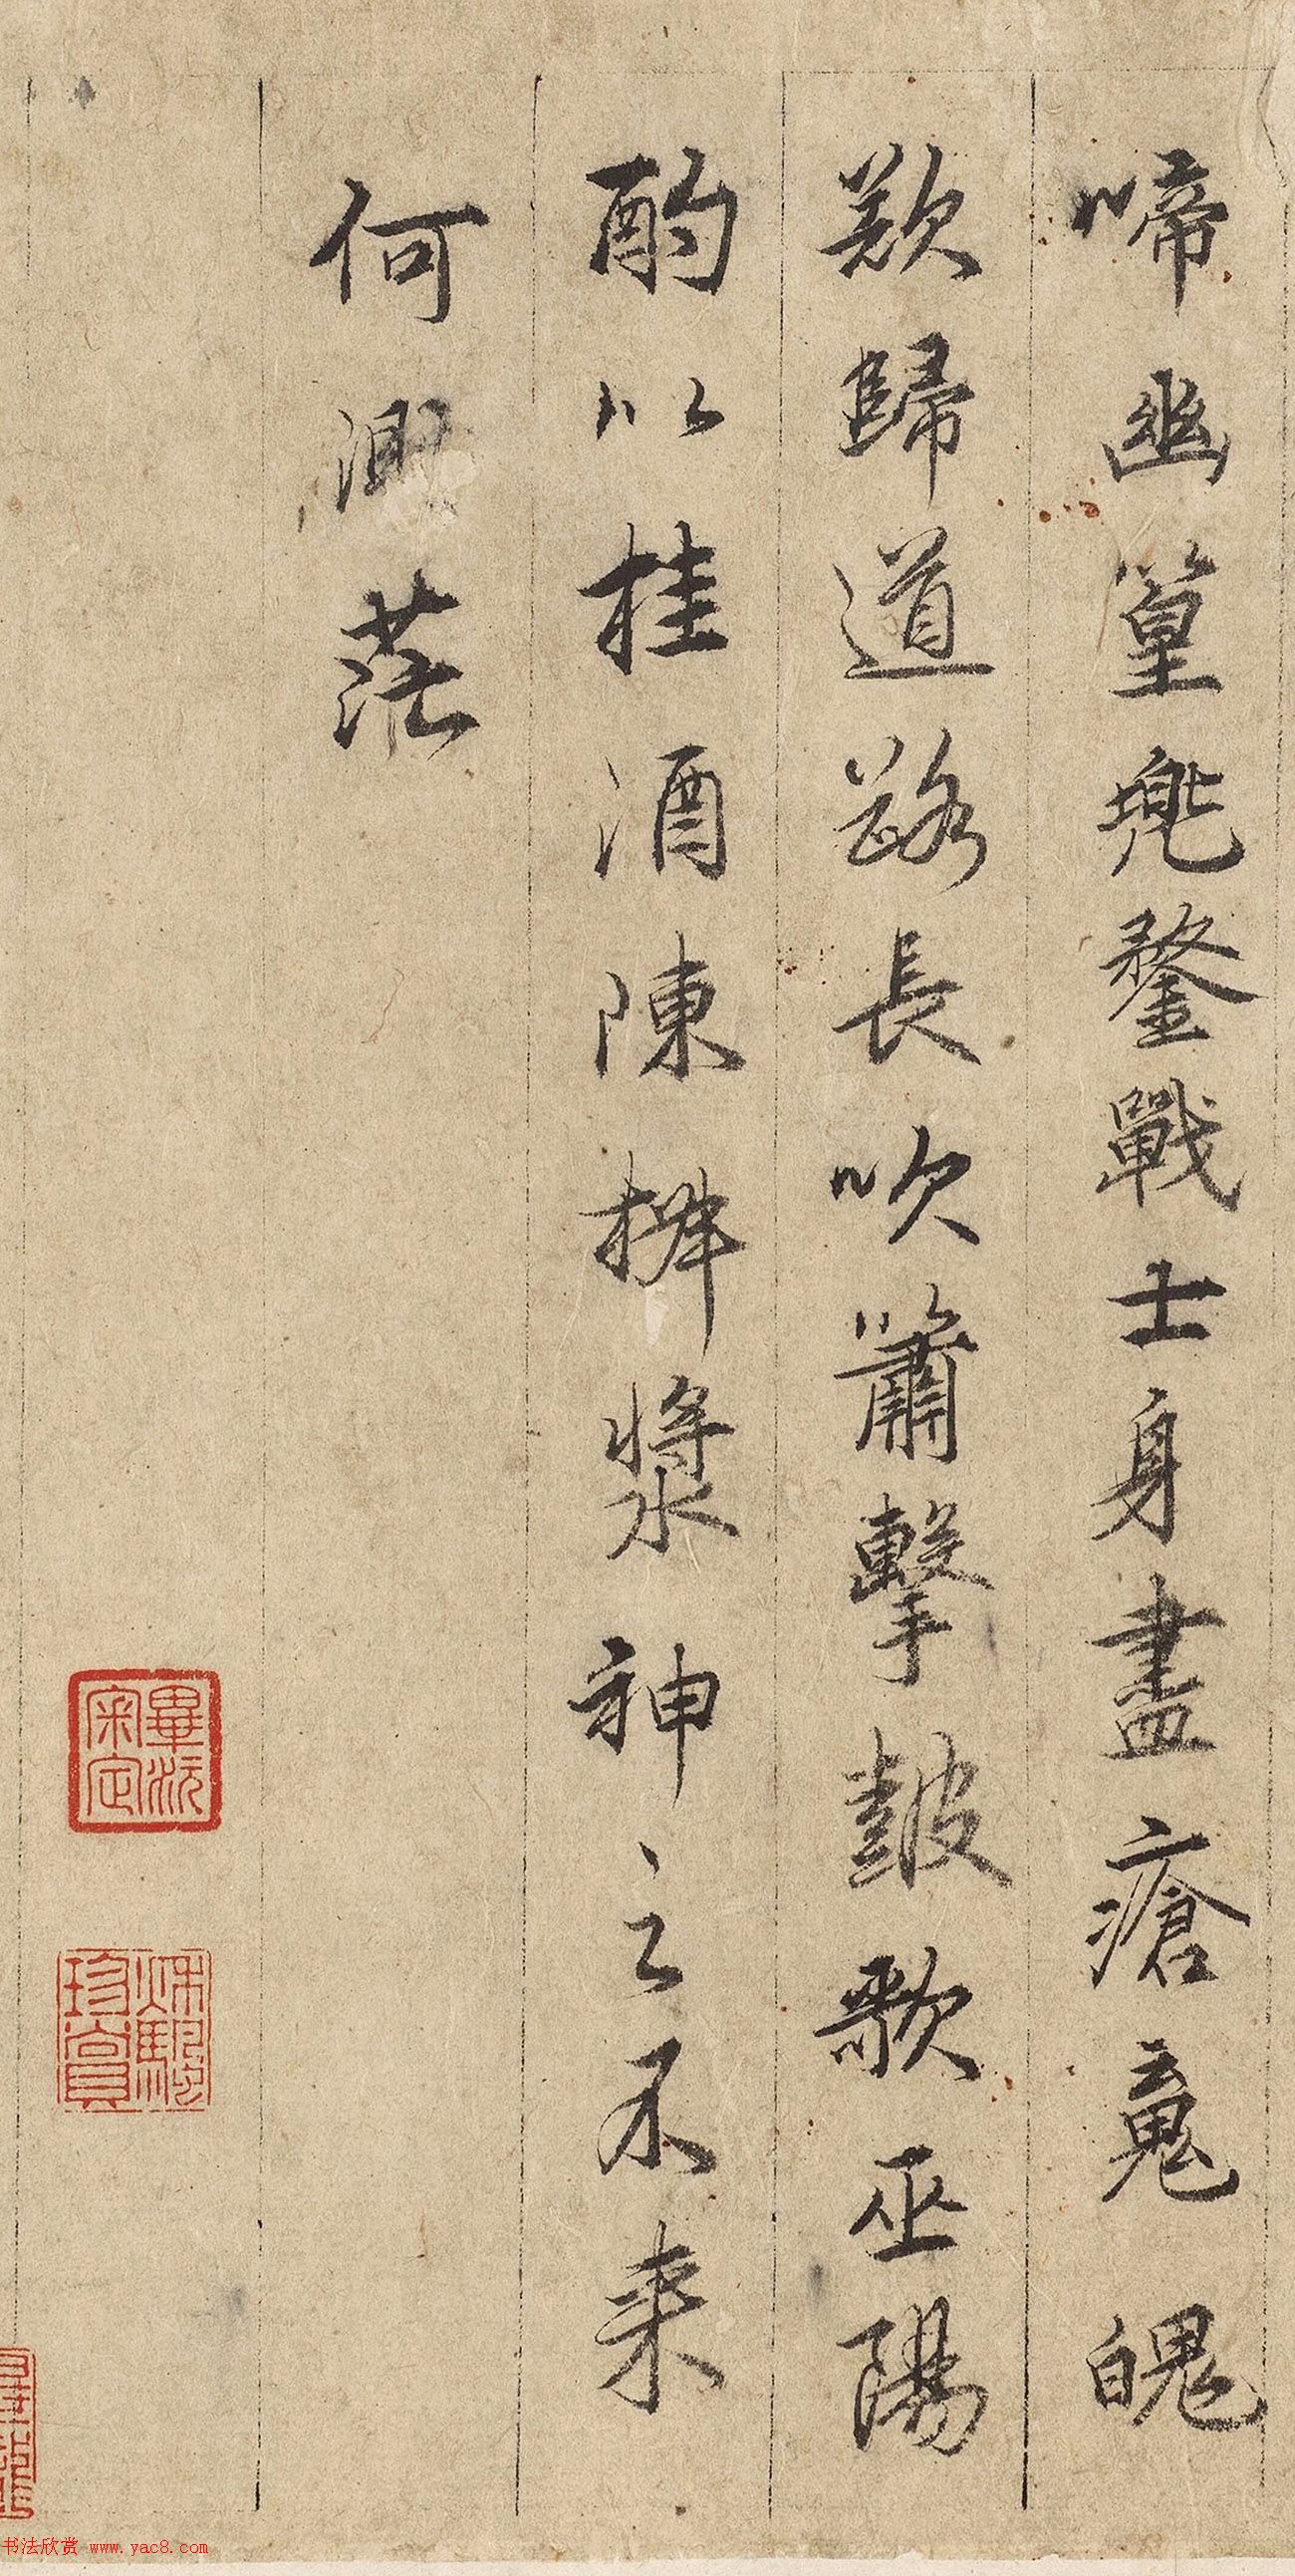 啼幽篁兜鍪戰士身盡瘡䰟魄
欵歸道路長吹簫擊皷歌巫陽
酌以桂酒陳椒漿神之不来
何渺茫
畢沅
宷定
珍賞
书法欣赏 www.yac8.com